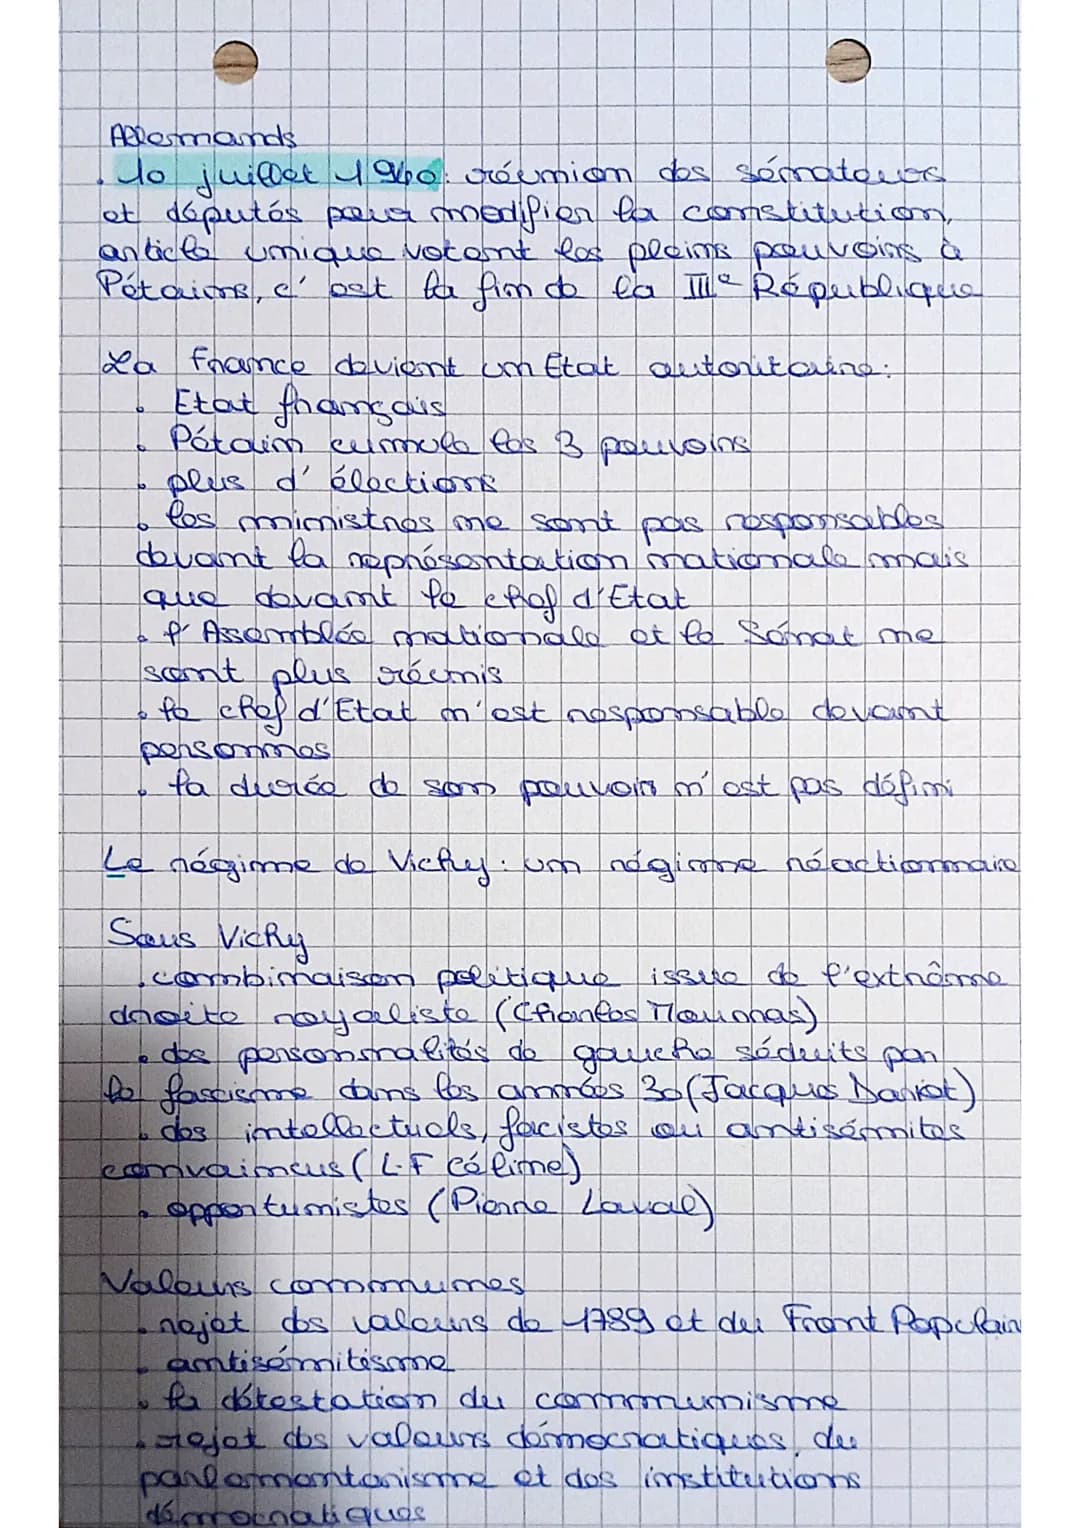 Allemands
. 10 juillet 1940: réunion des sénateurs
et députés pour modifier la constitution,
article unique votant les pleins pouvoirs à
Pétains, c'est la fin de la IIIe République
La France devient un Etat autoritaire:
• Etat français
• Pétain cumule les 3 pouvoirs
• plus d'élections
• les ministres ne sont pas responsables
devant la représentation nationale mais
que devant le chef d'Etat
• l'Assemblée nationale et le Sénat ne
sont plus réunis
• le chef d'Etat n'est responsable devant
personnes
• la durée de son pouvoir n'est pas défini
Le régime de Vichy: un régime réactionnaire
Sous Vichy
• combinaison politique issue de l'extrême
droite royaliste (Charles Mourras)
• des personnalités de gauche séduits par
le fascisme dans les années 30 (Jacques Doriot)
• des intellectuels, facistes ou antisémites
convaincus (L.F Céline)
• opportunistes (Pierre Laval)
Valeurs communes
• rejet des valeurs de 1789 et du Front Populair
• antisémitisme
• la détestation du communisme
• rejet des valeurs démocratiques, du
parlementarisme et des institutions
démocratiques